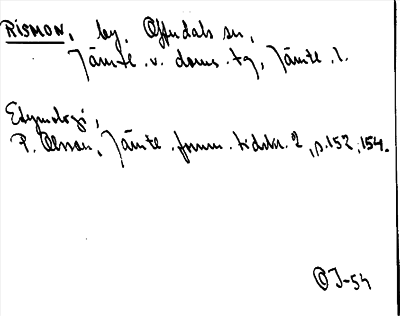 RISMON, by, Offerdals sn,
Jämte. v. doms. tg, Jämte. l.
Etymologi,
P. Olsson, Jämte. fornm. tidskr. 2, s. 152, 154.
OJ-54